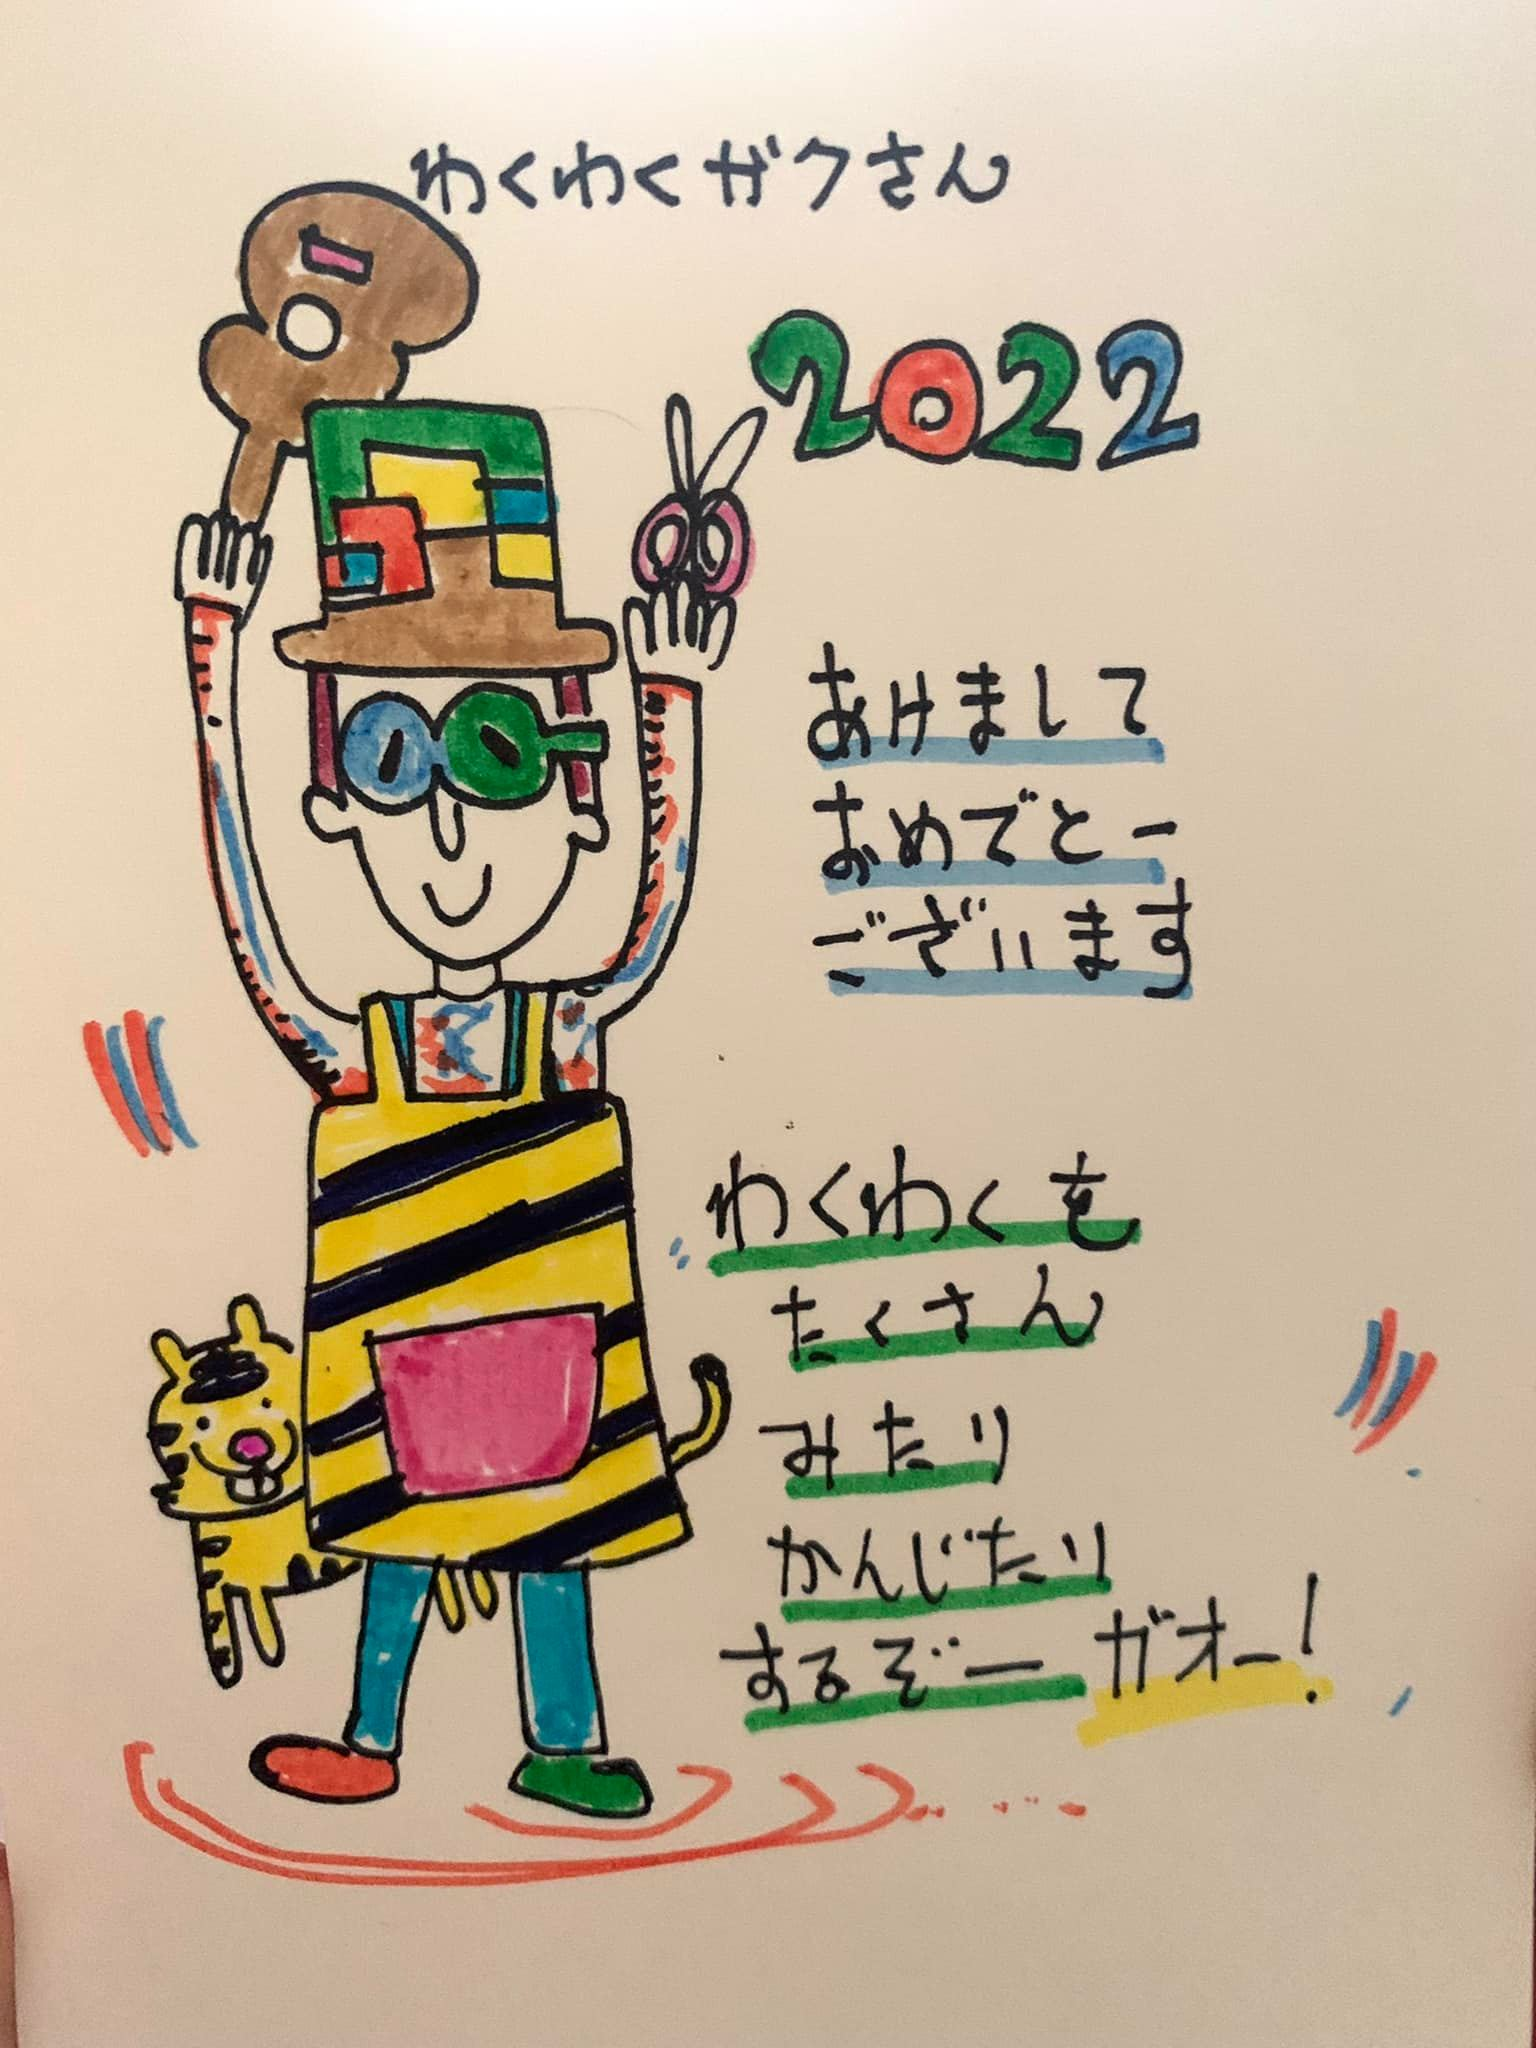 わくわくガクさん
2022
あけまして
おめでとー
ございます
わくわくを
たくさん
みたり
かんじたり
するぞー ガオー!